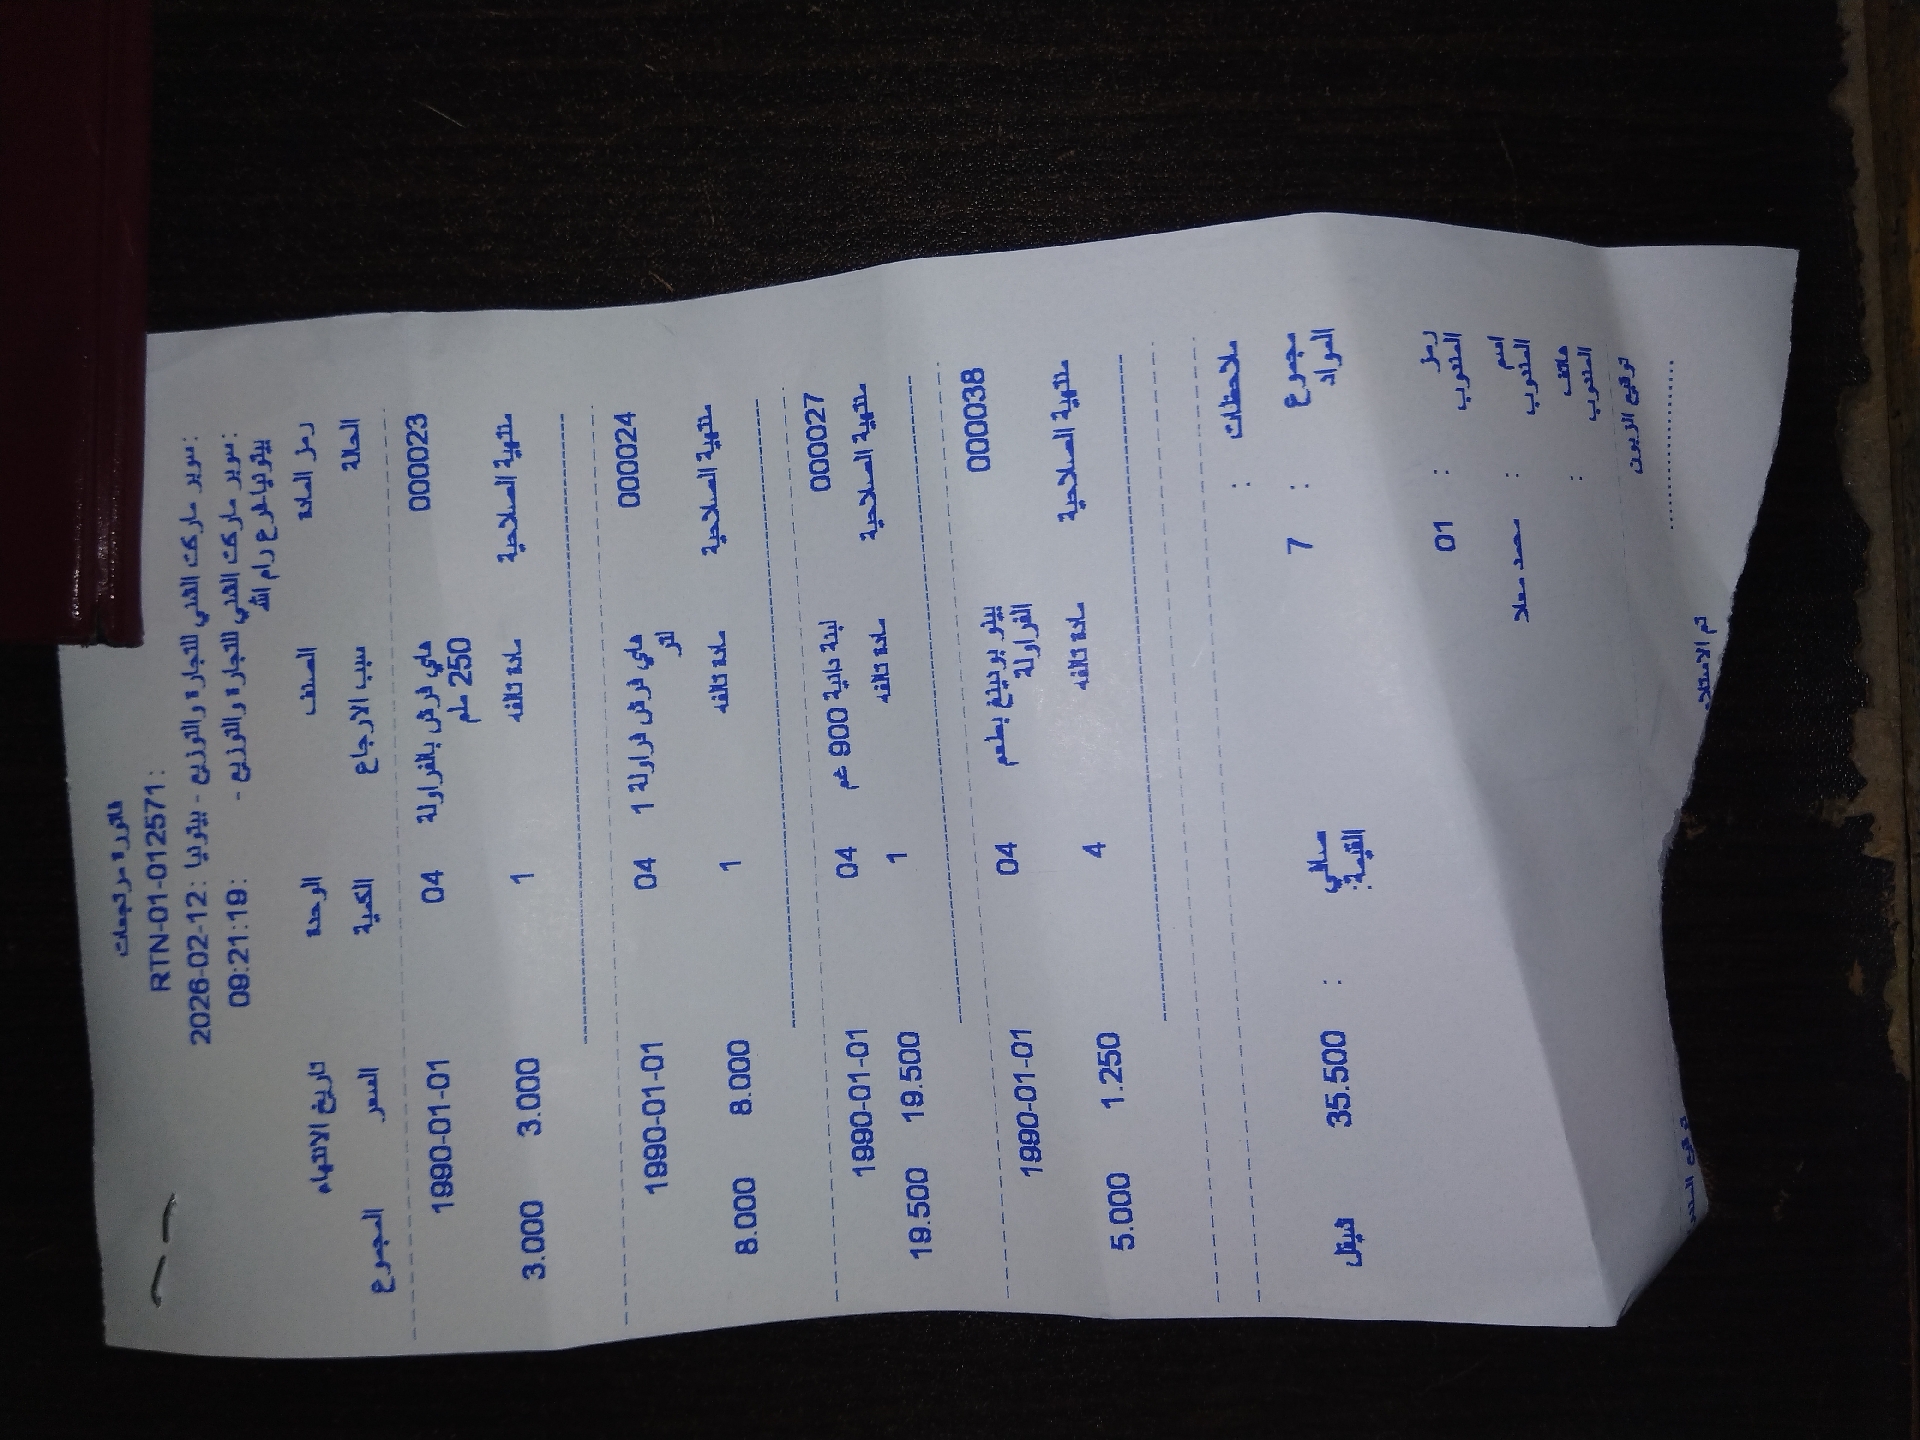 فاتورة مرتجعات
RTN-01-012571 :
2026-02-12 : سوبر ماركت الغني للتجارة والتوزيع - بيتونيا :
09:21:19 : سوبر ماركت الغني للتجارة والتوزيع - :
بيتونيا فرع رام الله
رمز المادة الصنف الوحدة تاريخ الانتهاء
الحالة سبب الارجاع الكمية السعر المجموع
000023 هاي فرش بالفراولة 04 1990-01-01
250 ملم
منتهية الصلاحية مادة تالفه 1 3.000 3.000
000024 هاي فرش فراولة 1 04 1990-01-01
لتر
منتهية الصلاحية مادة تالفه 1 8.000 8.000
000027 لبنة بلدية 900 غم 04 1990-01-01
منتهية الصلاحية مادة تالفه 1 19.500 19.500
000038 بيتو بودينغ بطعم 04 1990-01-01
الفراولة
منتهية الصلاحية مادة تالفه 4 1.250 5.000
ملاحظات :
مجموع المواد : 7 صافي القيمة : 35.500 شيقل
رمز المندوب : 01
اسم المندوب : محمد معلا
هاتف المندوب :
توقيع الزبون
....................
تم